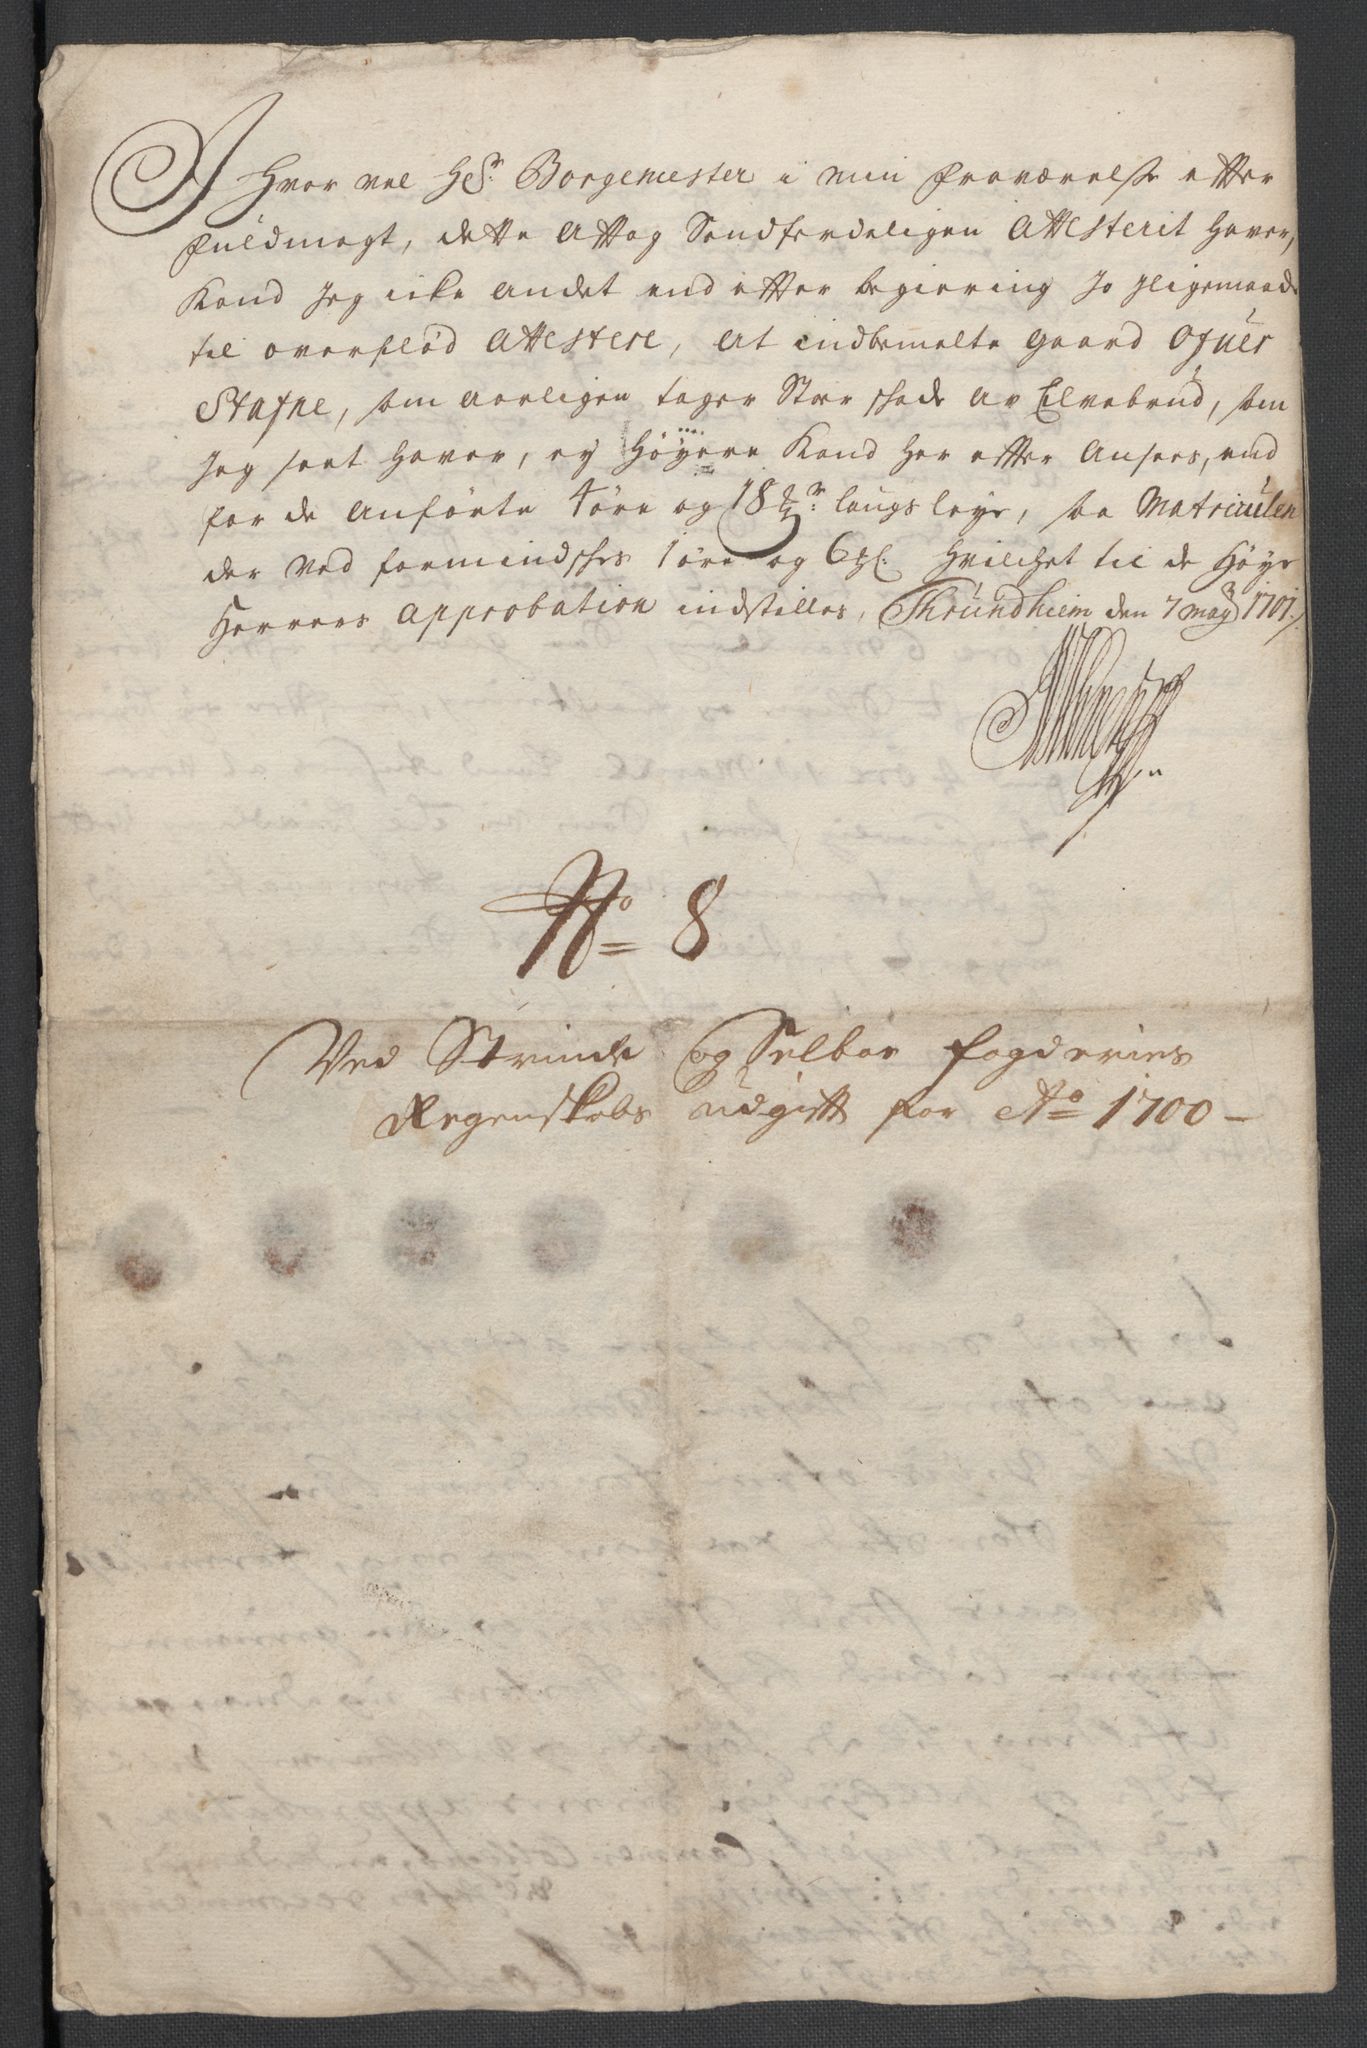 Hvor vel Hr: Borgemester i min fraværelse efter
fuldmagt, dette Attog Sandferdeligen Attesterit haver,
Kand Jeg icke andet end efter begiering Jo Jligemaade
til overflod Attestere, at indbemelte gaard Ofuer
Stafne, som aarligen tager Stor skade av Elvebrud, som
Jeg seet haver, ey Høyere Kand her efter Ansees, end
for de anførte 4 øre og 18 laugs leye, saa Matriculen
der ved formindsches 1 øre og 6 Hvilchet til de Høye
Herrers Approbation indstilles, Thrundhiem den 7 May 1701
No 8
Ved Strinde og Selboe fogderies
Regenskabs udgift for Ao 1700 -